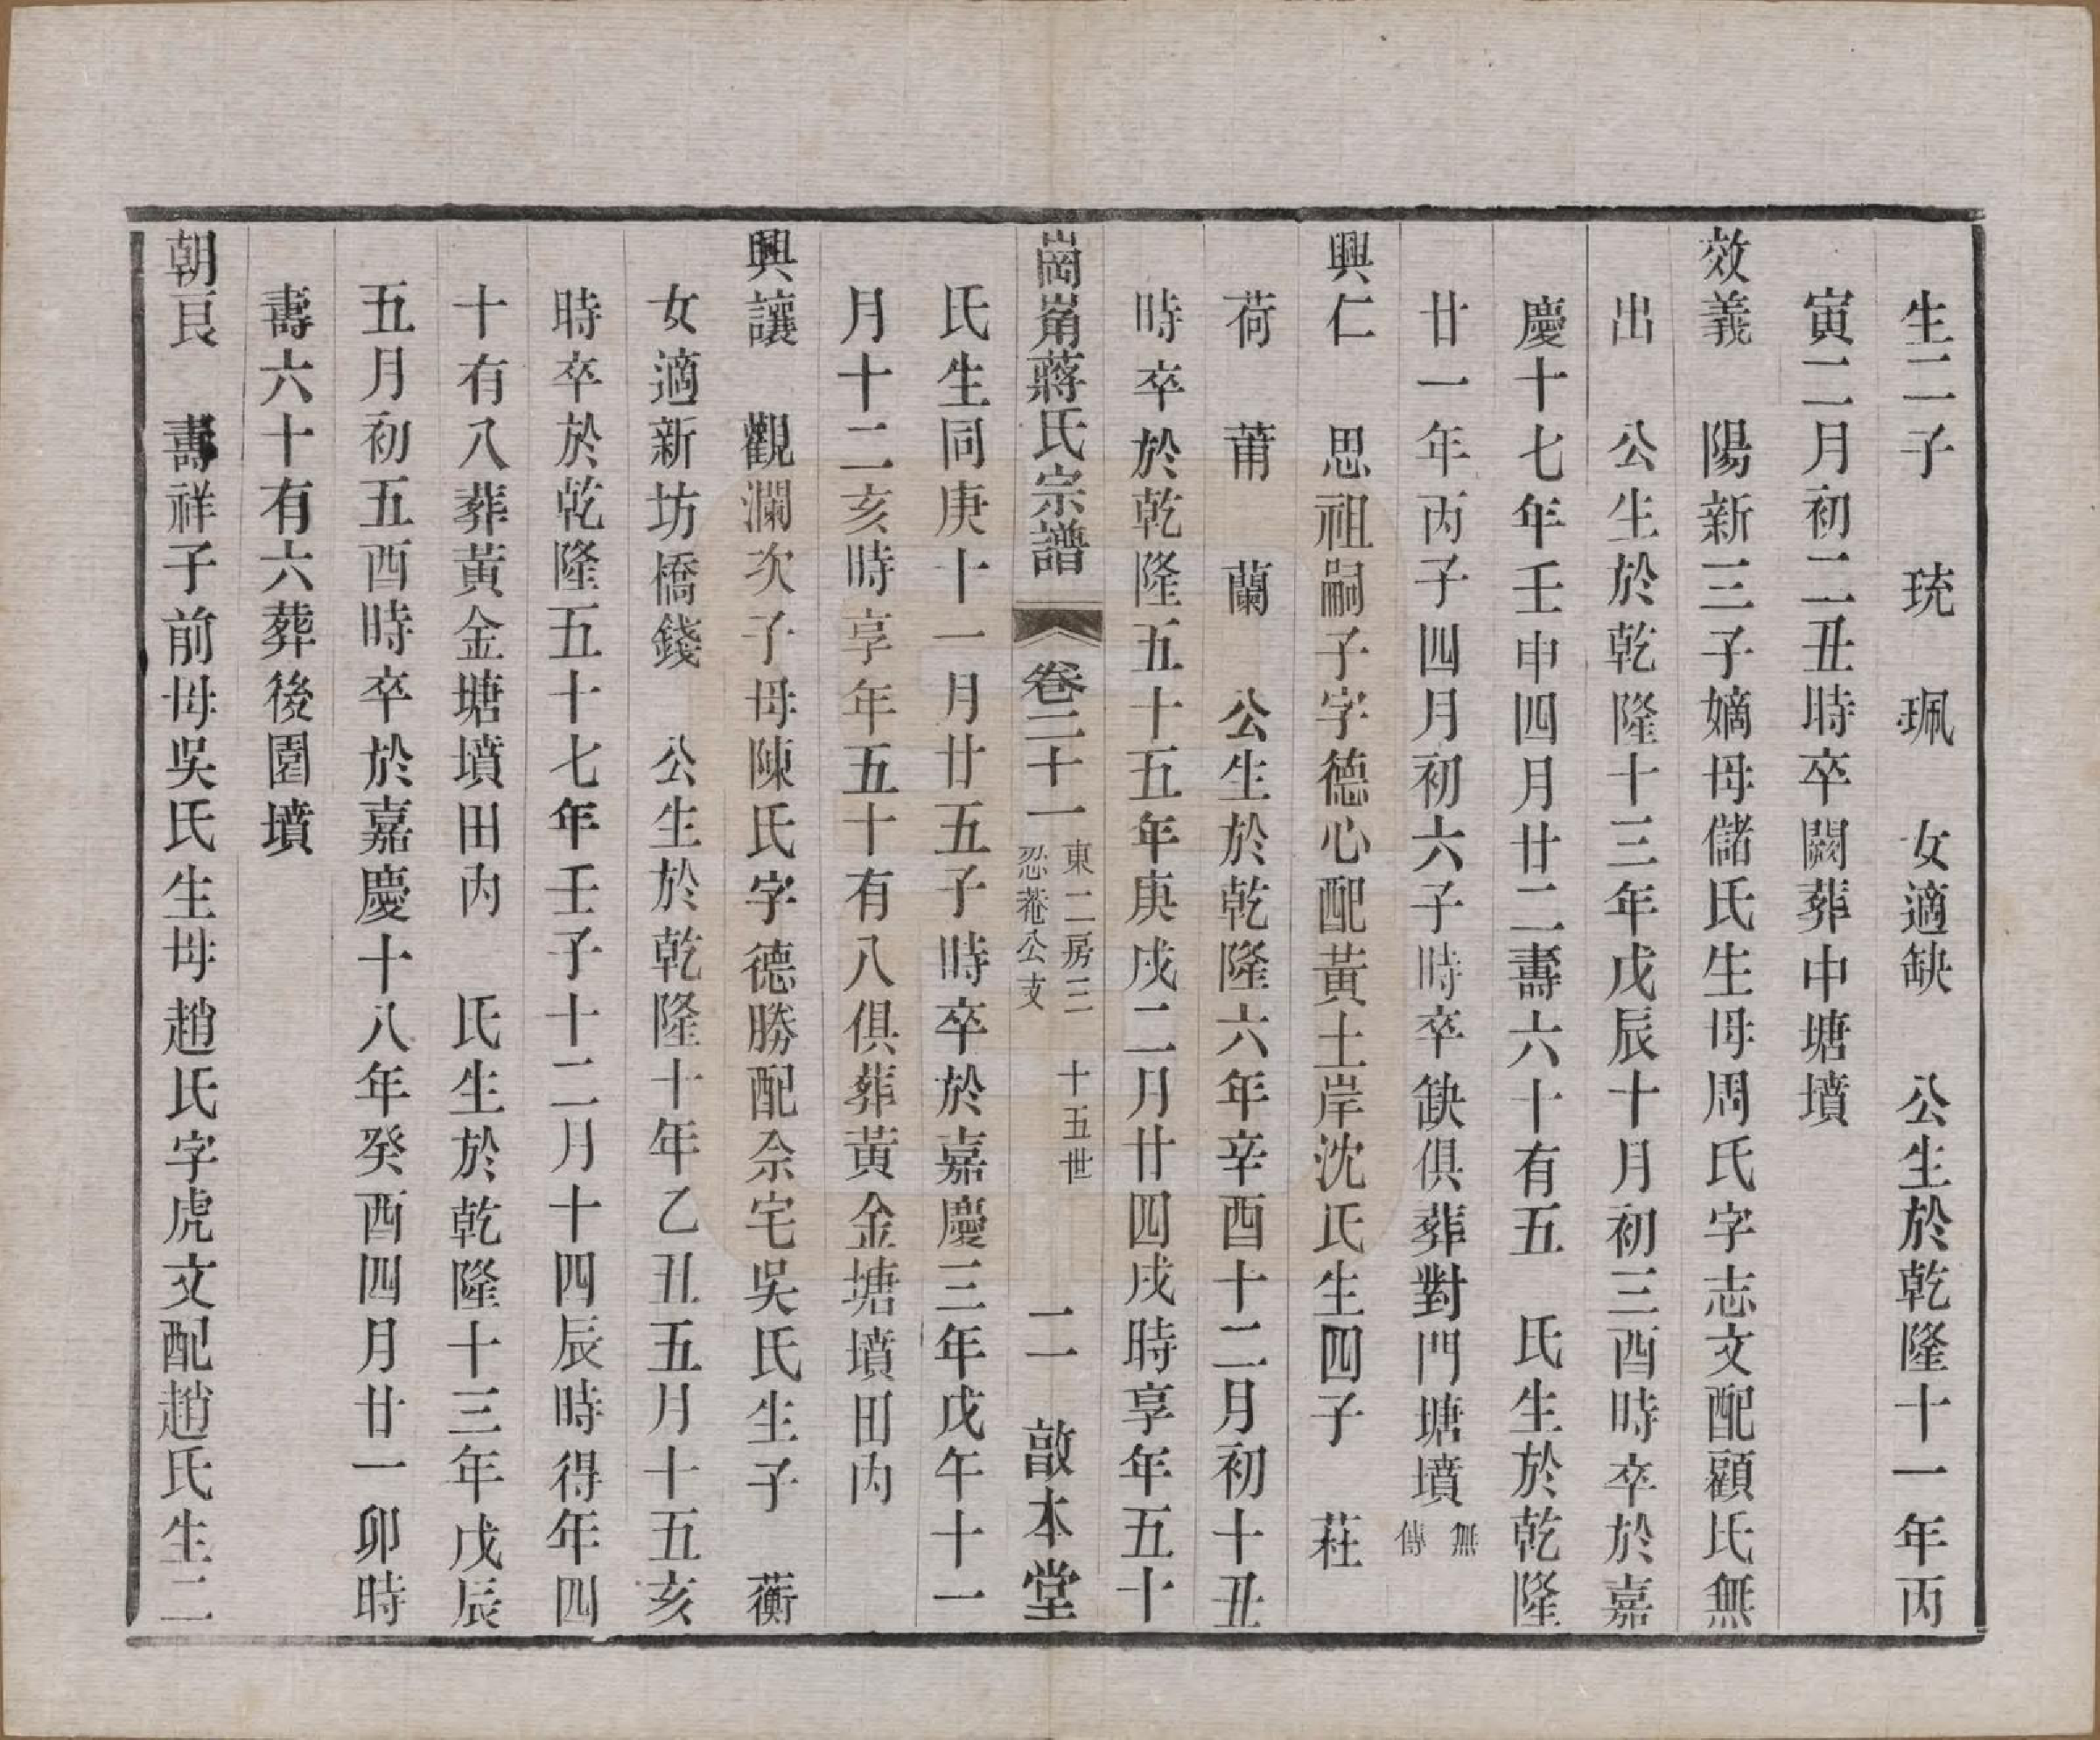 生二子　琉　珮　女適缺　公生於乾隆十一年丙
寅二月初二丑時卒闕葬中塘墳
效義　陽新三子嫡母儲氏生母周氏字志文配顧氏無
出　公生於乾隆十三年戊辰十月初三酉時卒於嘉
慶十七年壬申四月廿二壽六十有五　氏生於乾隆
廿一年丙子四月初六子時卒缺俱葬對門塘墳無傳
興仁　思祖嗣子字德心配黃土岸沈氏生四子　荘
荷　莆　蘭　公生於乾隆六年辛酉十二月初十丑
時卒於乾隆五十五年庚戌二月廿四戌時享年五十
崗嵛蔣氏宗譜　卷二十一　東二房三忍菴公支　十五世　二　敨本堂
氏生同庚十一月廿五子時卒於嘉慶三年戊午十一
月十二亥時享年五十有八俱葬黃金塘墳田內
興讓　觀瀾次子母陳氏字德勝配佘宅吳氏生子　蘅
女適新坊橋錢　公生於乾隆十年乙丑五月十五亥
時卒於乾隆五十七年壬子十二月十四辰時得年四
十有八葬黃金塘墳田內　氏生於乾隆十三年戊辰
五月初五酉時卒於嘉慶十八年癸酉四月廿一卯時
壽六十有六葬後園墳
朝良　壽祥子前母吳氏生母趙氏字虎文配趙氏生二